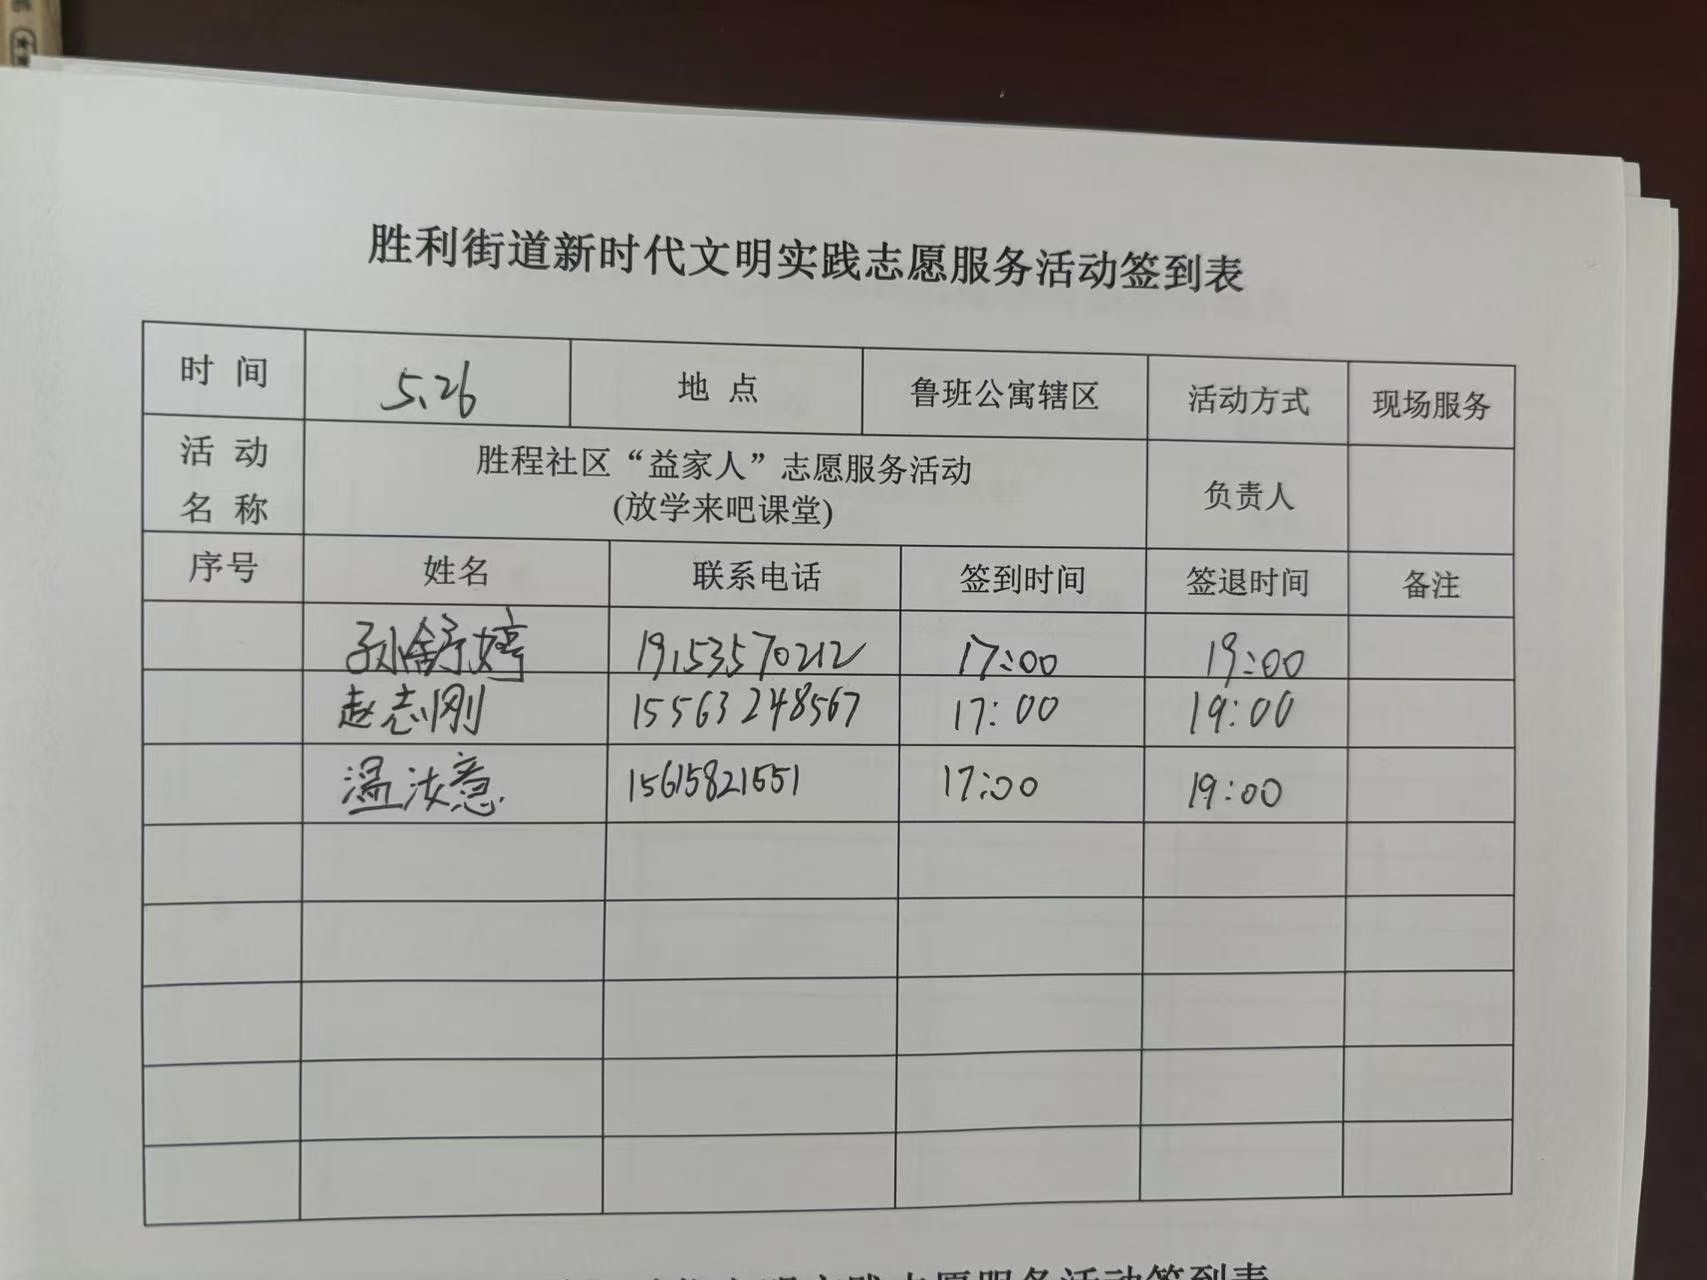 胜利街道新时代文明实践志愿服务活动签到表
时 间 5.26 地 点 鲁班公寓辖区 活动方式 现场服务
活 动 名 称 胜程社区“益家人”志愿服务活动 负责人
(放学来吧课堂)
序号 姓名 联系电话 签到时间 签退时间 备注
孙舒婷 19153570212 17:00 19:00
赵志刚 15563248567 17:00 19:00
温汝意 15615821551 17:00 19:00
文明实践志愿服务活动签到表